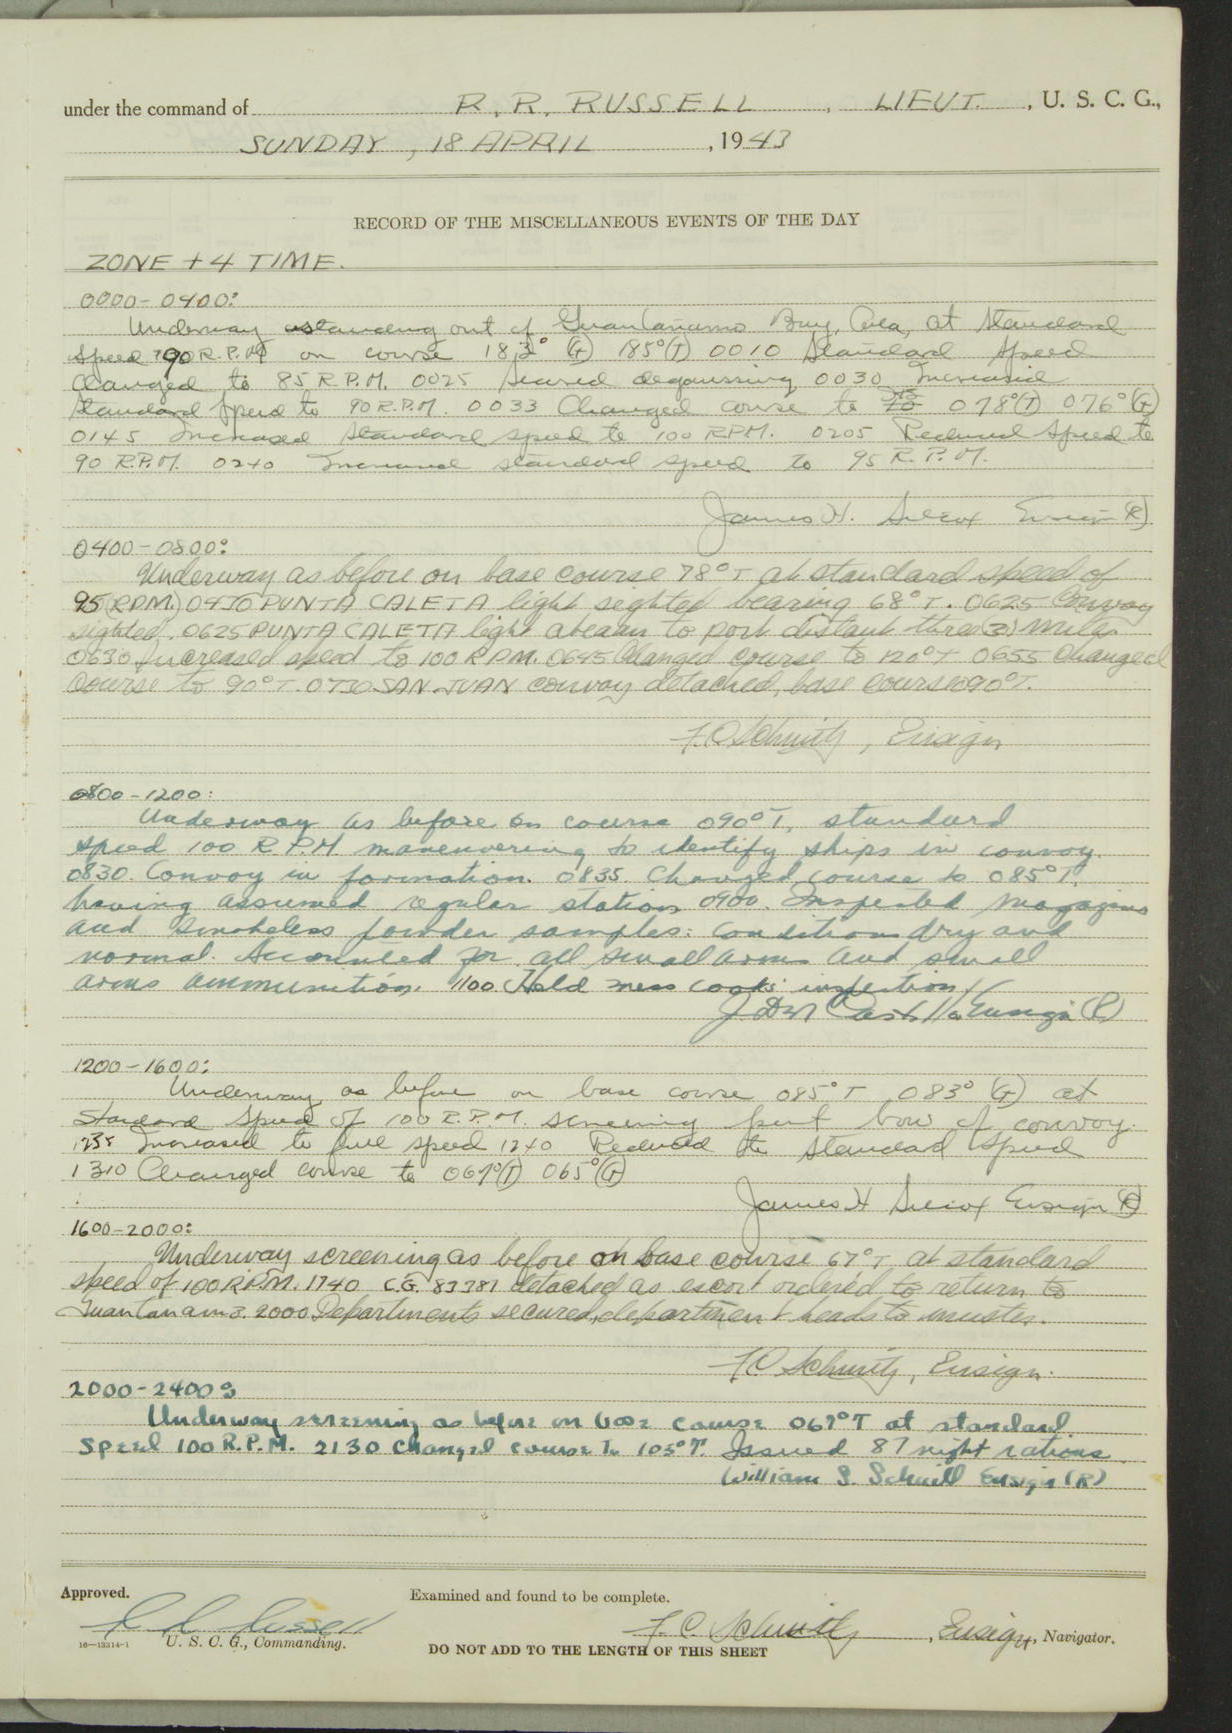 under the command of R. R. RUSSELL, LIEUT., U. S. C. G.,
SUNDAY, 18 APRIL, 1943
RECORD OF THE MISCELLANEOUS EVENTS OF THE DAY
ZONE +4 TIME.
0000-0400:
Underway standing out of Guantanamo Bay, Cuba, at standard
speed 90 R.P.M. on course 183° (G) 185°(T) 0010 Standard speed
changed to 85 R.P.M. 0025 Secured degaussing 0030 Increased
standard speed to 90 R.P.M. 0033 Changed course to 078°(T) 076°(G)
0145 Increased standard speed to 100 RPM. 0205 Reduced speed to
90 R.P.M. 0240 Increased standard speed to 95 R.P.M.
James H. Silcox Ensign (R)
0400-0800:
Underway as before on base course 78°T at standard speed of
95 (RPM.) 0450 PUNTA CALETA light sighted bearing 68°T. 0625 Convoy
sighted. 0625 PUNTA CALETA light abeam to port distant three (3) miles
0630 Increased speed to 100 RPM. 0645 Changed course to 120°T 0655 Changed
course to 90°T. 0730 SAN JUAN convoy detached, base course 090°T.
F. C. Schmitz, Ensign
0800-1200:
Underway as before on course 090°T, standard
speed 100 R.P.M. maneuvering to identify ships in convoy.
0830. Convoy in formation. 0835 Changed course to 085°T,
having assumed regular station 0900. Inspected magazines
and smokeless powder samples: conditions dry and
normal. Accounted for all small arms and small
arms ammunition. 1100 Held mess cooks' inspection.
Ensign (R)
1200-1600:
Underway as before on base course 085°T 083° (G) at
standard speed of 100 R.P.M. screening port bow of convoy.
1235 Increased to full speed 1240 Reduced to standard speed
1310 Changed course to 067°(T) 065°(G)
James H Silcox Ensign (R)
1600-2000:
Underway screening as before on base course 67°T at standard
speed of 100 RPM. 1740 C.G. 83387 detached as escort ordered to return to
Guantanamo. 2000 Departments secured, department heads to muster.
F. C. Schmitz, Ensign.
2000-2400:
Underway screening as before on base course 067°T at standard
speed 100 R.P.M. 2130 Changed course to 105°T. Issued 87 night rations.
William S. Schwill Ensign (R)
Approved.
Examined and found to be complete.
R R Russell
F. C. Schmitz, Ensign, Navigator.
16—13314-1 U. S. C. G., Commanding.
DO NOT ADD TO THE LENGTH OF THIS SHEET